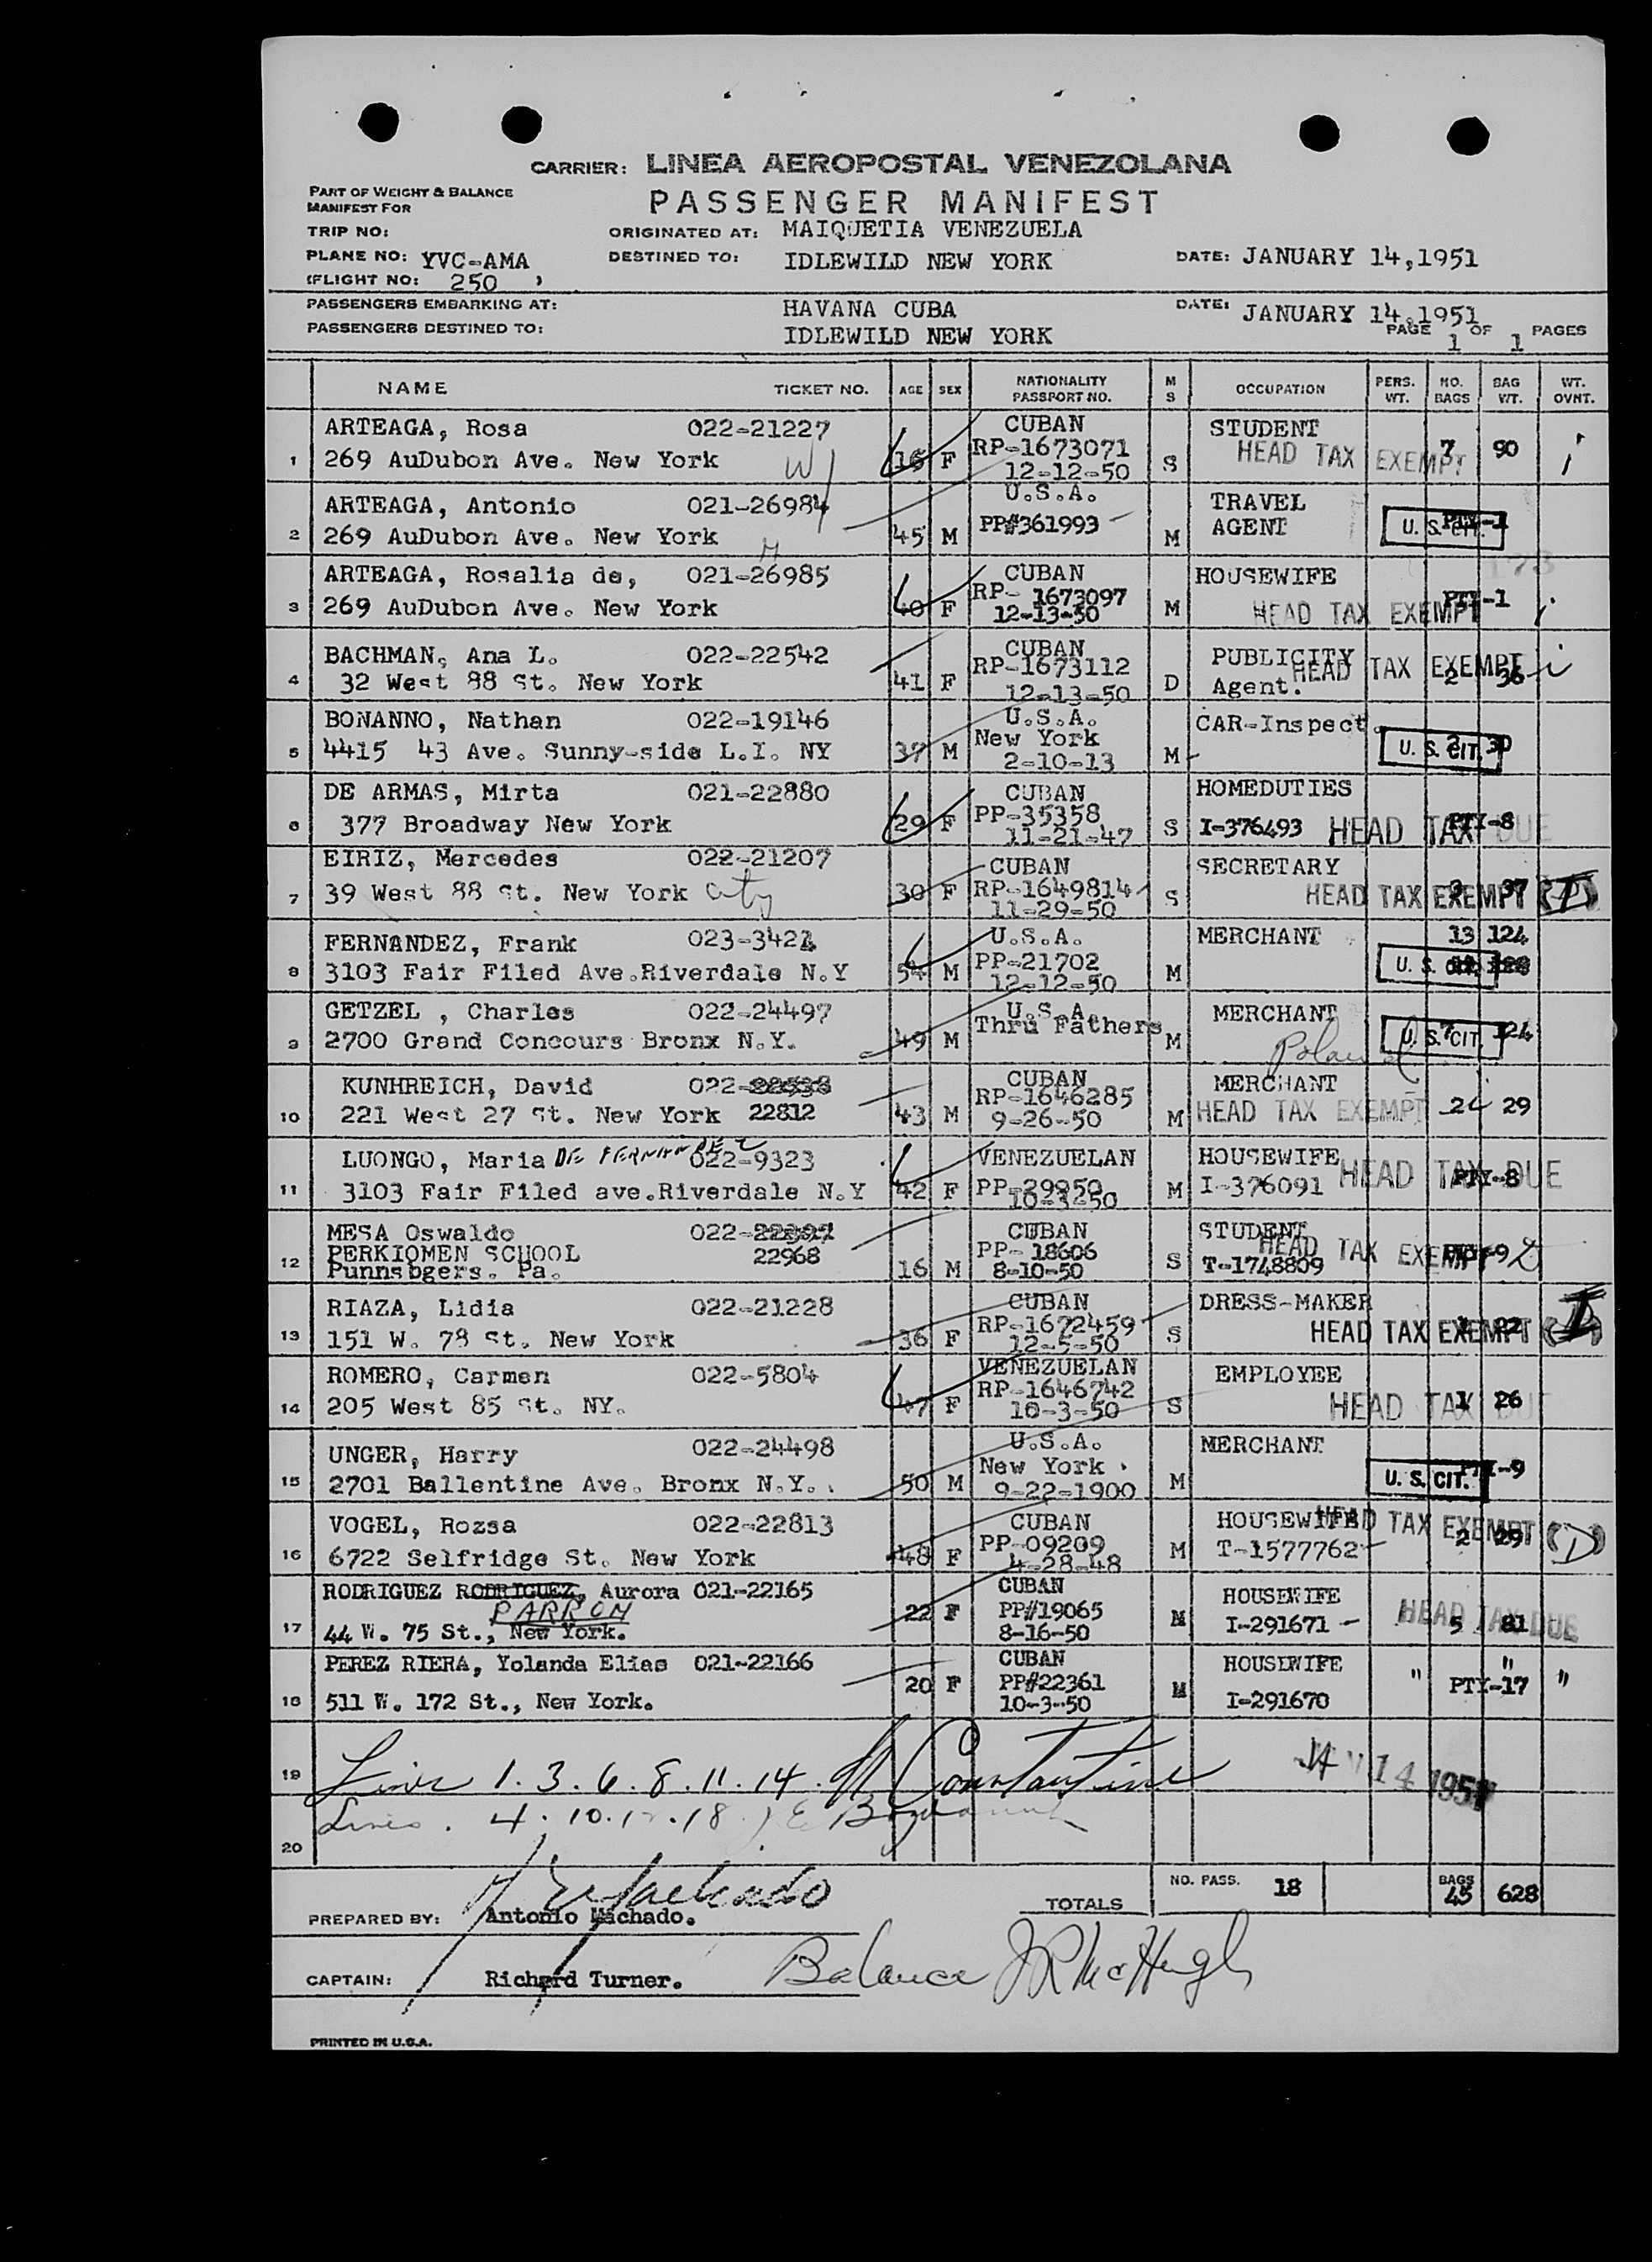 CARRIER: LINEA AEROPOSTAL VENEZOLANA
PART OF WEIGHT & BALANCE
MANIFEST FOR
PASSENGER MANIFEST
TRIP NO: ORIGINATED AT: MAIQUETIA VENEZUELA
PLANE NO: YVC-AMA DESTINED TO: IDLEWILD NEW YORK DATE: JANUARY 14,1951
(FLIGHT NO: 250 )
PASSENGERS EMBARKING AT: HAVANA CUBA DATE: JANUARY 14,1951
PASSENGERS DESTINED TO: IDLEWILD NEW YORK PAGE 1 OF 1 PAGES
NAME TICKET NO. AGE SEX NATIONALITY PASSPORT NO. M S OCCUPATION PERS. WT. NO. BAGS BAG WT. WT. OVNT.
ARTEAGA, Rosa 022-21227 CUBAN STUDENT
1 269 AuDubon Ave. New York 16 F RP-1673071 S HEAD TAX EXEMPT 7 90
12-12-50
ARTEAGA, Antonio 021-26984 U.S.A. TRAVEL
2 269 AuDubon Ave. New York 45 M PP#361993 M AGENT U. S. CIT. PTY-1
ARTEAGA, Rosalia de, 021-26985 CUBAN HOUSEWIFE
3 269 AuDubon Ave. New York 40 F RP- 1673097 M HEAD TAX EXEMPT PTY-1
12-13-50
BACHMAN, Ana L. 022-22542 CUBAN PUBLICITY
4 32 West 88 St. New York 41 F RP-1673112 D Agent. HEAD TAX EXEMPT 2 36
12-13-50
BONANNO, Nathan 022-19146 U.S.A. CAR-Inspect.
5 4415 43 Ave. Sunny-side L.I. NY 37 M New York M U. S. CIT. 2 30
2-10-13
DE ARMAS, Mirta 021-22880 CUBAN HOMEDUTIES
6 377 Broadway New York 29 F PP-35358 S I-376493 HEAD TAX DUE PTY-8
11-21-47
EIRIZ, Mercedes 022-21207 CUBAN SECRETARY
7 39 West 88 St. New York City 30 F RP-1649814 S HEAD TAX EXEMPT 37
11-29-50
FERNANDEZ, Frank 023-3421 U.S.A. MERCHANT 13 124
8 3103 Fair Filed Ave.Riverdale N.Y 54 M PP-21702 M U. S. CIT.
12-12-50
GETZEL , Charles 022-24497 U.S.A. MERCHANT
9 2700 Grand Concours Bronx N.Y. 49 M Thru Fathers M Poland U. S. CIT. 7 124
KUNHREICH, David 022-22538 CUBAN MERCHANT
10 221 West 27 St. New York 22812 43 M RP-1646285 M HEAD TAX EXEMPT 2 29
9-26-50
LUONGO, Maria DE FERNANDEZ 022-9323 VENEZUELAN HOUSEWIFE
11 3103 Fair Filed ave.Riverdale N.Y 42 F PP-29950 M I-376091 HEAD TAX DUE PTY-8
10-3-50
MESA Oswaldo 022- CUBAN STUDENT
12 PERKIOMEN SCHOOL 22968 16 M PP- 18606 S T-1748809 HEAD TAX EXEMPT
Punnsbgers. Pa. 8-10-50
RIAZA, Lidia 022-21228 CUBAN DRESS-MAKER
13 151 W. 78 St. New York 36 F RP-1672459 S HEAD TAX EXEMPT 1 22
12-5-50
ROMERO, Carmen 022-5804 VENEZUELAN EMPLOYEE
14 205 West 85 St. NY. 47 F RP-1646742 S HEAD TAX DUE 1 26
10-3-50
UNGER, Harry 022-24498 U.S.A. MERCHANT
15 2701 Ballentine Ave. Bronx N.Y. 50 M New York M U. S. CIT. PTY-9
9-22-1900
VOGEL, Rozsa 022-22813 CUBAN HOUSEWIFE HEAD TAX EXEMPT
16 6722 Selfridge St. New York 48 F PP-09209 M T-1577762 2 29 (D)
4-28-48
RODRIGUEZ RODRIGUEZ, Aurora 021-22165 CUBAN HOUSEWIFE
PARRON
17 44 W. 75 St., New York. 22 F PP#19065 M I-291671 HEAD TAX DUE 5 81
8-16-50
PEREZ RIERA, Yolanda Elias 021-22166 CUBAN HOUSEWIFE
18 511 W. 172 St., New York. 20 F PP#22361 M I-291670 " PTY-17 " "
10-3-50
19 Lines 1. 3. 6. 8. 11. 14. Constantine JAN 14 1951
Lines . 4. 10. 12. 18
20
TOTALS NO. PASS. 18 BAGS 45 628
PREPARED BY: Antonio Machado.
CAPTAIN: Richard Turner. Balance JR McHugh
PRINTED IN U.S.A.